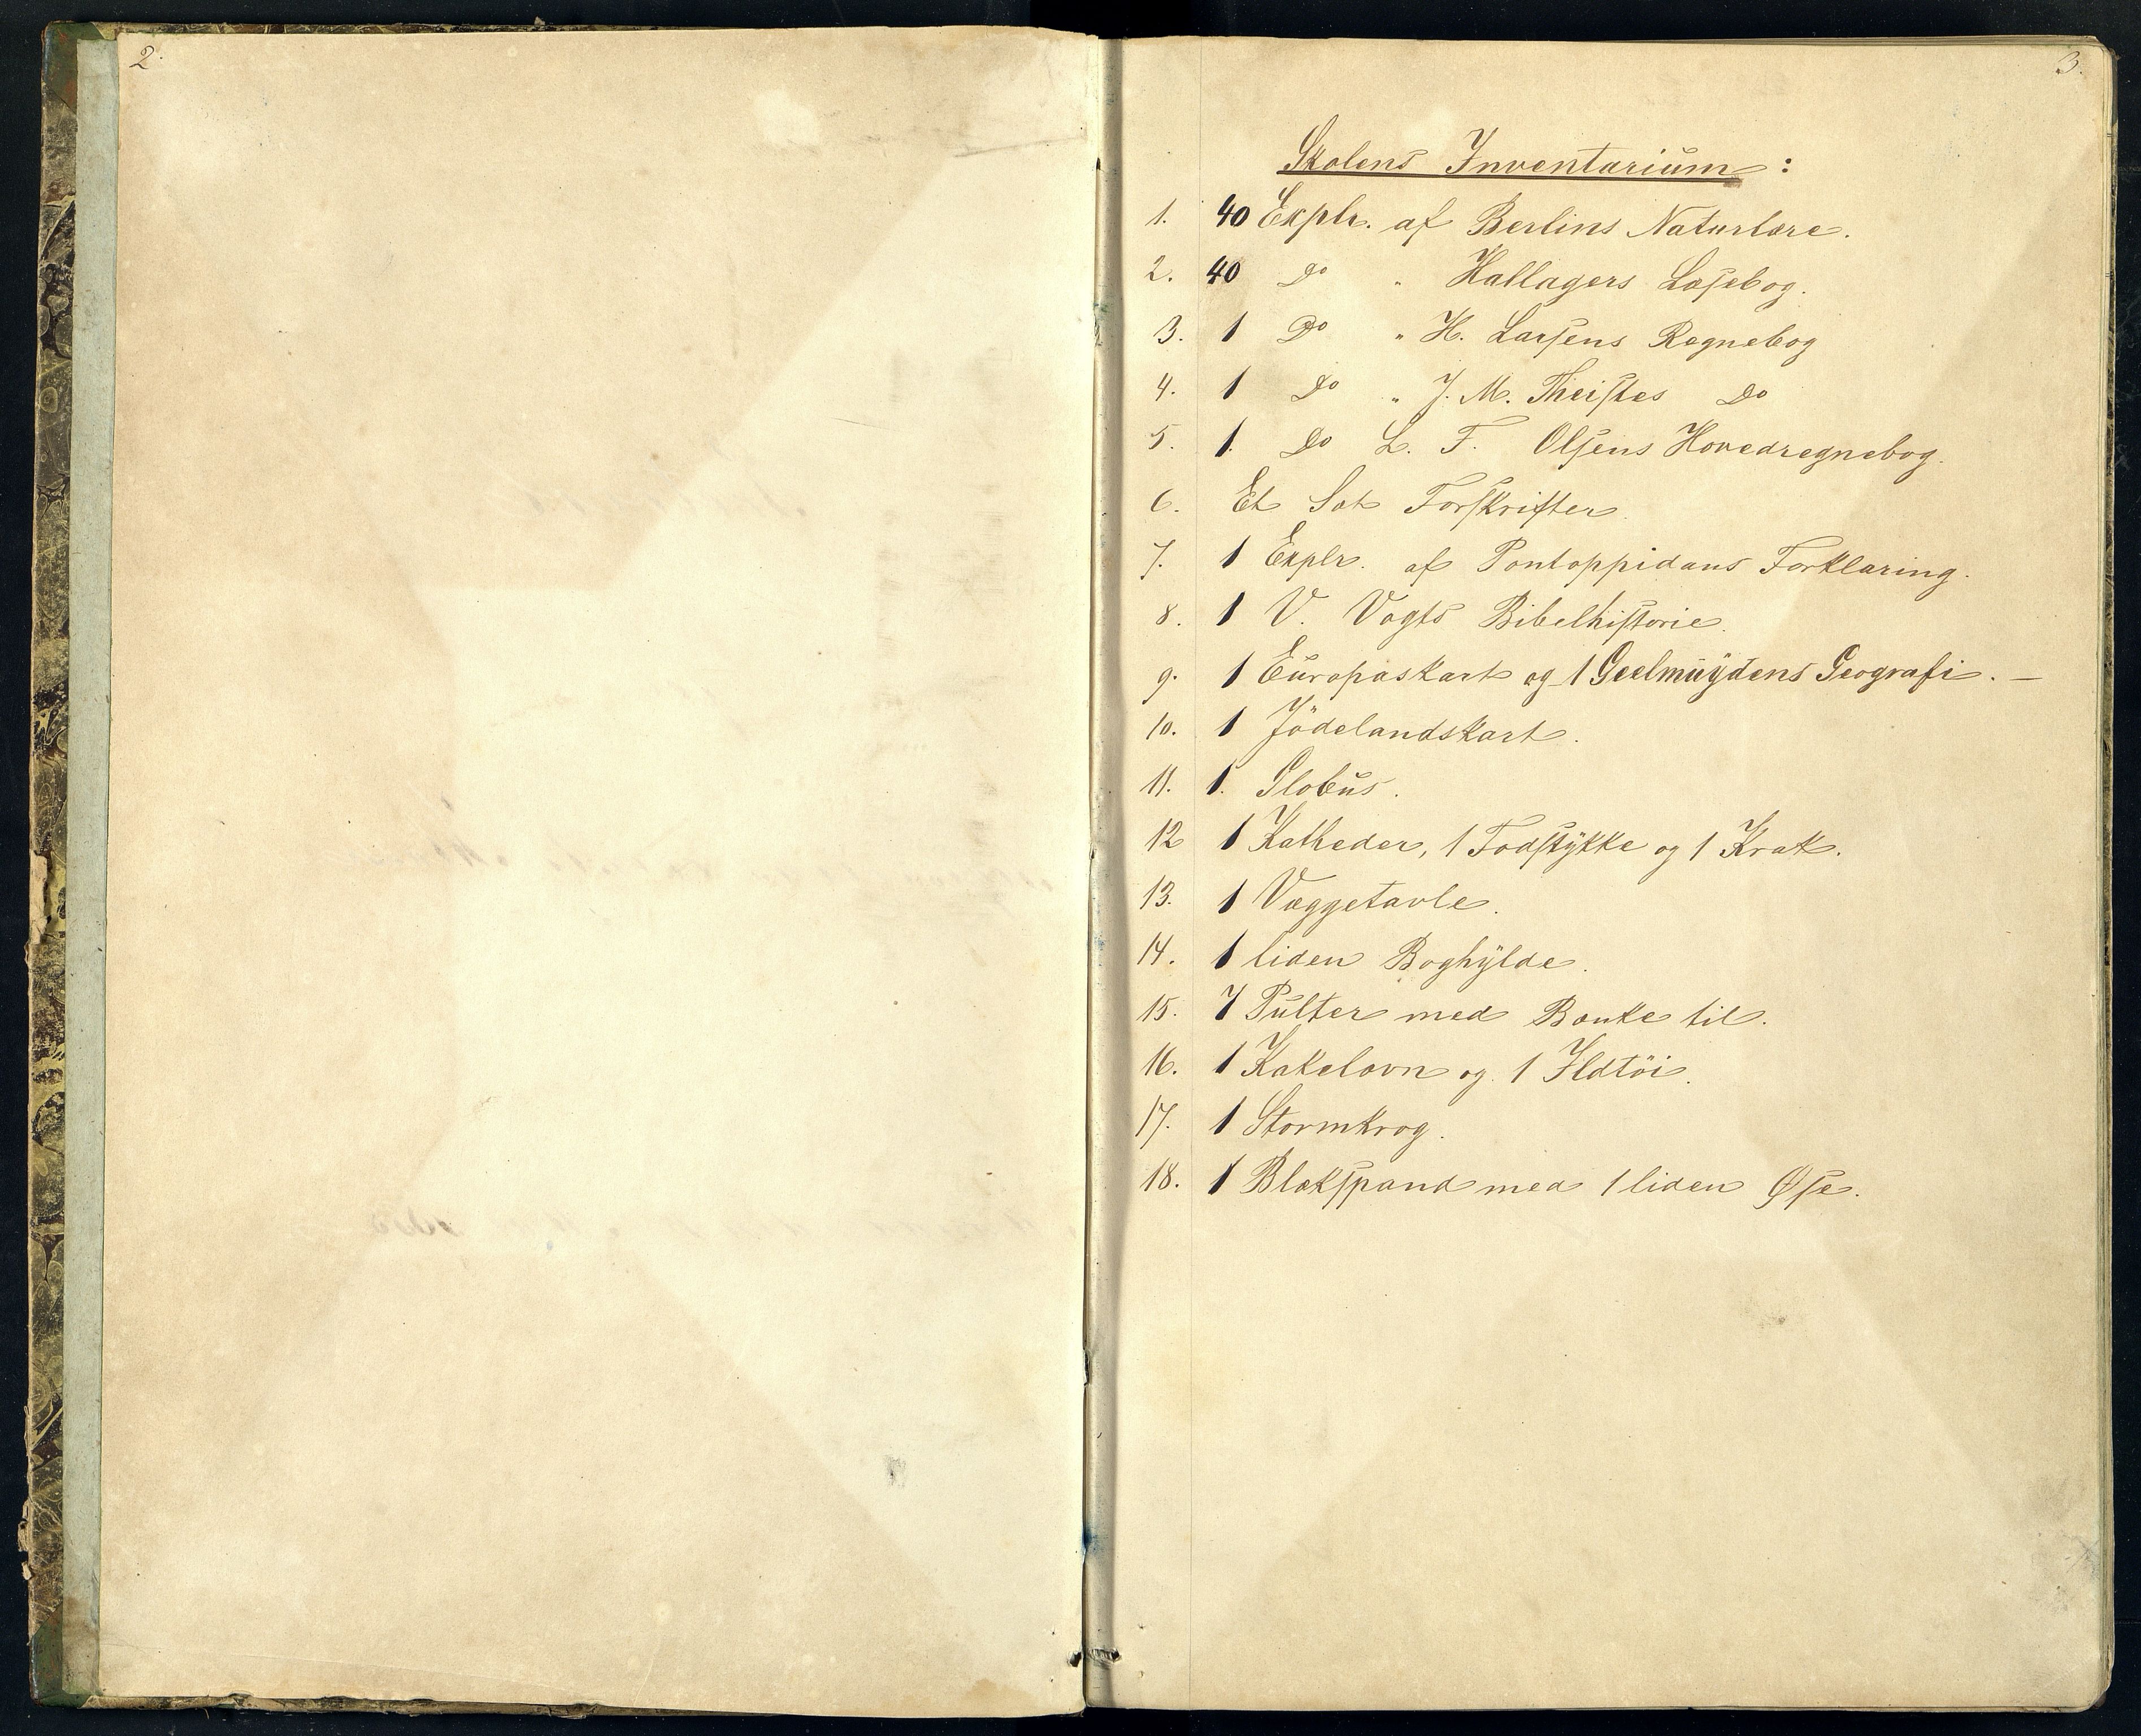 2.
3.
Skolens Inventarium:
1. 40 Explr. af Berlins Naturlære.
2. 40 Do " Hallagers Læsebog.
3. 1 Do " H. Larsens Regnebog
4. 1 Do " J. M. Theistes Do
5. 1. Do L. F. Olsens Hovedregnebog.
6. Et Sæt Forskrifter.
7. 1 Explr. af Pontoppidans Forklaring.
8. 1 V. Vogts Bibelhistorie.
9. 1 Europaskart og 1 Geelmuydens Geografi. —
10. 1 Jödelandskart.
11. 1. Globus.
12 1 Katheder, 1 Fodstykke og 1 Krak.
13. 1 Væggetavle.
14. 1 liden Boghylde.
15. 7 Pulter med Bænke til.
16. 1 Kakelovn og 1 Ildtöi.
17. 1 Stormkrog.
18. 1 Blekspand med 1 liden Øse.